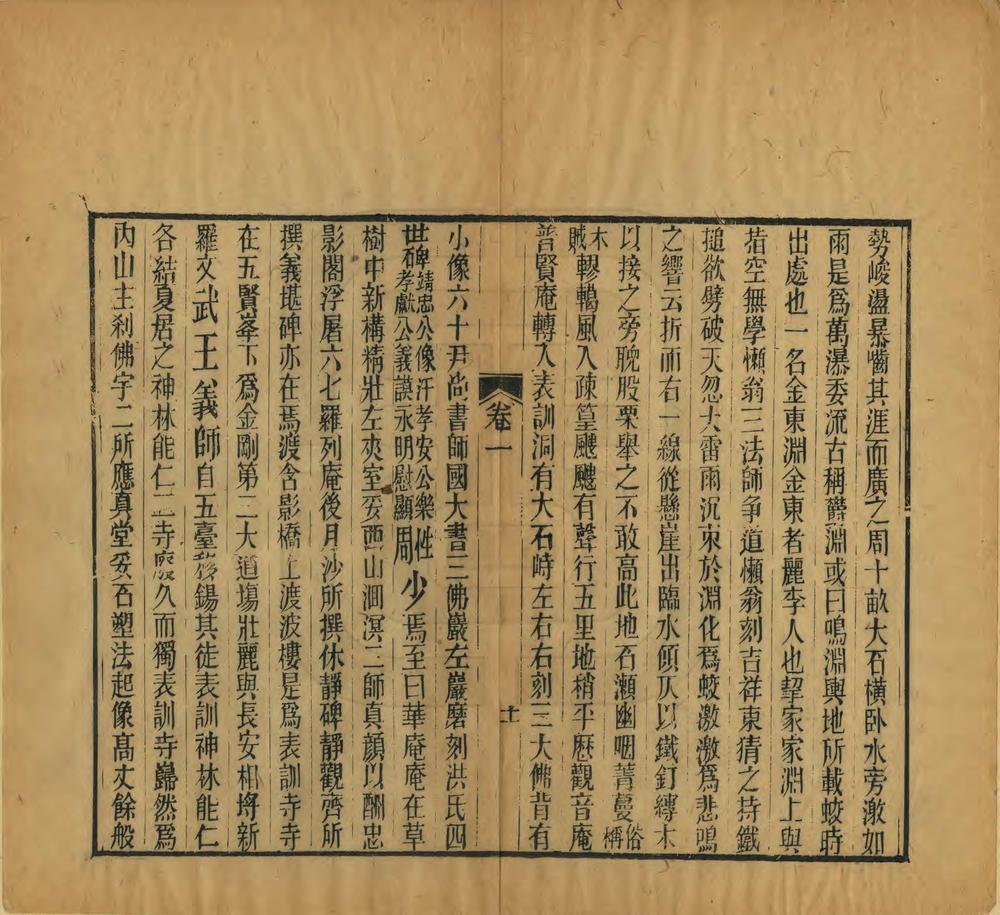 勢峻盪暴嚙其涯而廣之周十畝大石橫卧水旁激如
雨是爲萬瀑委流古稱欝淵或曰鳴淵輿地所載蛟時
出處也一名金東淵金東者麗李人也挈家家淵上與
指空無學懶翁三法師争道懶翁刻吉祥東猜之持鐵
搥欲劈破天忽大雷雨沉束於淵化爲蛟激激爲悲鳴
之響云折而右一線從懸崖出臨水傾仄以鐵釘縳木
以接之旁睨股栗舉之不敢高此地石瀨幽咽菁蔓俗稱
木賊轇轕風入疎篁颸颸有聲行五里地稍平歷觀音庵
普賢庵轉入表訓洞有大石時左右右刻三大佛背有
卷一
十一
小像六十尹尚書師國大書三佛巖左巖磨刻洪氏四
世碑靖忠公像汗孝安公樂性孝獻公義謨永明慰顯周少焉至曰華庵庵在草
樹中新構精壯左夾室妥西山泗溟二師真顔以酬忠
影閣浮屠六七羅列庵後月沙所撰休靜碑靜觀齊所
撰義堪碑亦在焉渡含影橋上渡波樓是爲表訓寺寺
在五賢峯下爲金剛第二大道塲壯麗與長安相埒新
羅文武王義師自五臺移錫其徒表訓神林能仁
各結夏居之神林能仁二寺廢久而獨表訓寺巋然爲
內山主刹佛宇二所應真堂妥石塑法起像高丈餘般